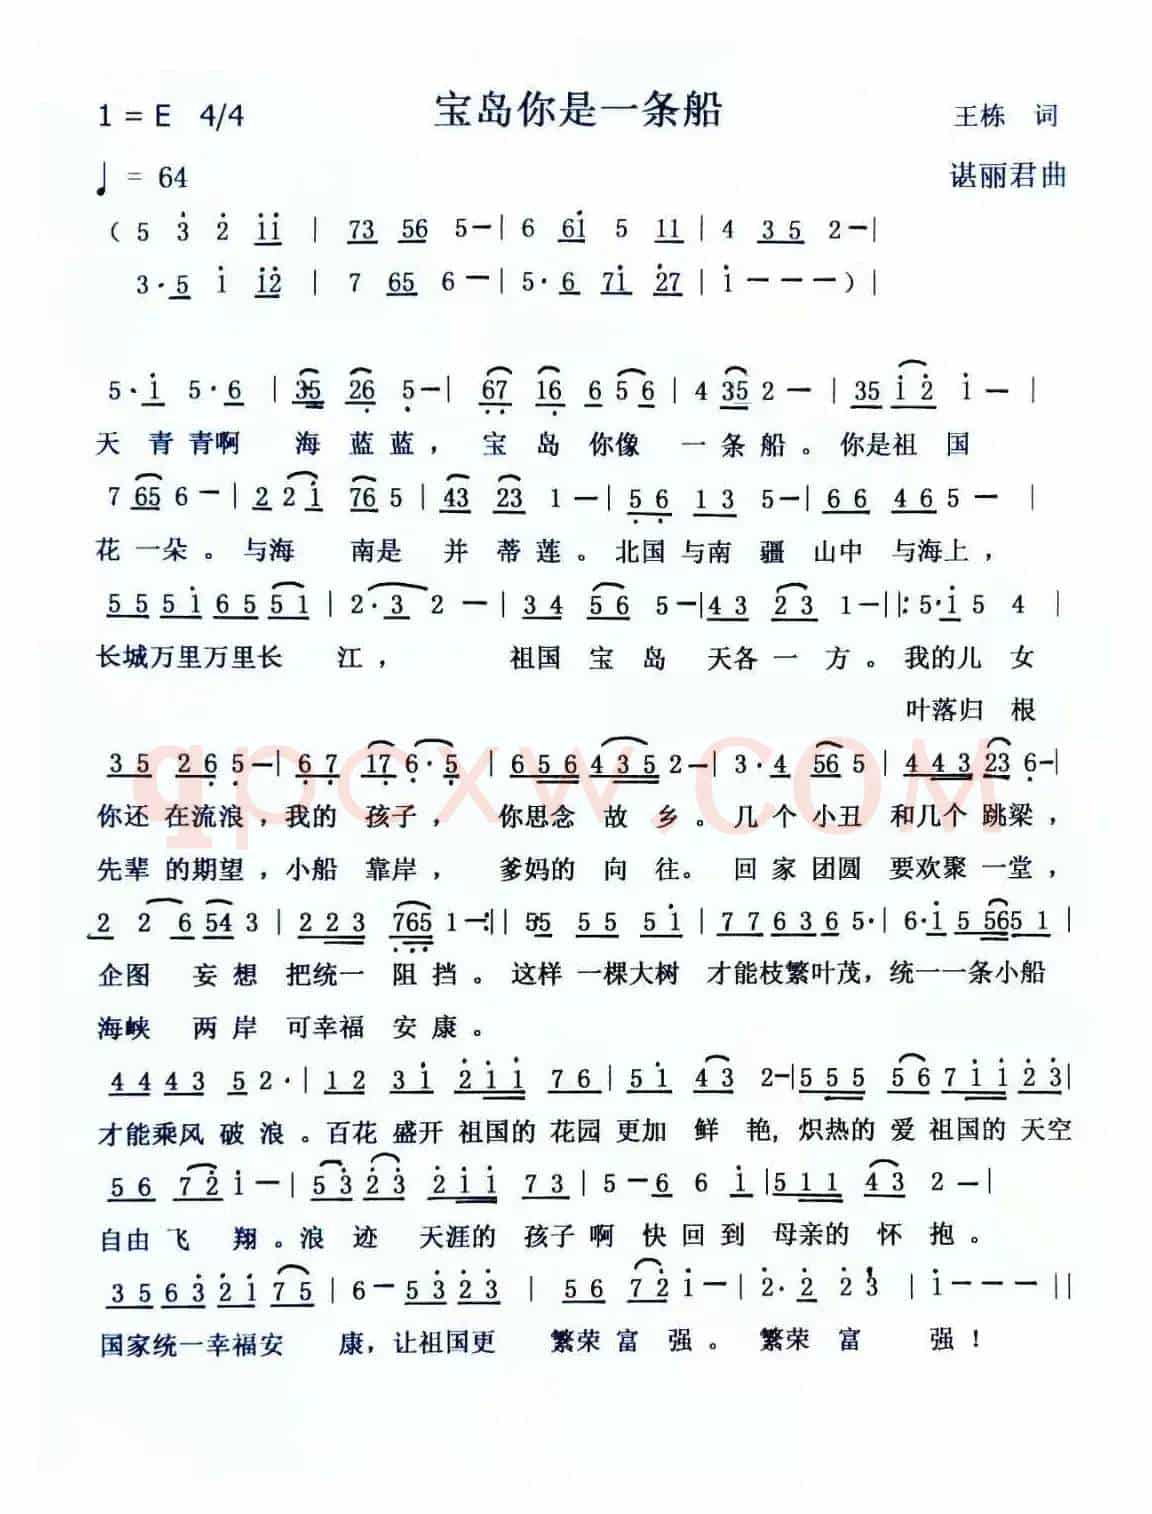 1 = E 4/4 宝岛你是一条船 王栋 词
♩ = 64 谌丽君曲
( 5 3̇ 2̇ 1̇1̇ | 73 56 5—| 6 61̇ 5 11 | 4 35 2—|
3·5 1̇ 1̇2̇ | 7 65 6—| 5·6 71̇ 2̇7 | 1̇———)|
5·1̇ 5·6 | 35 26̣ 5̣—| 6̣7̣ 16̣ 6̣ 5̣ 6̣ | 4 35 2— | 35 1̇ 2̇ 1̇— |
天 青 青啊 海 蓝 蓝 ， 宝 岛 你像 一 条 船 。 你是祖 国
7 65 6—| 2 2 1̇ 76 5 | 43 23 1—| 5̣ 6̣ 1 3 5—| 6 6 4 6 5— |
花 一 朵 。 与海 南是 并 蒂 莲 。 北国 与南 疆 山中 与海上 ，
5 5 5 1̇ 6 5 5 1̇ | 2·3 2 — | 3 4 5 6 5—|4 3 2 3 1—||: 5·1̇ 5 4 |
长城万里万里长 江 ， 祖国 宝 岛 天各 一 方 。 我的儿 女
叶落归 根
3 5 2 6̣ 5̣—| 6̣ 7̣ 1 7̣ 6̣·5̣ | 6 5 6 4 3 5 2—| 3·4 56 5 | 4 4 3 23 6̣—|
你还 在流浪 ，我的 孩子 ， 你思念 故 乡 。 几 个 小丑 和几个 跳梁 ，
先辈 的期望 ，小船 靠岸 ， 爹妈的 向 往。 回 家 团圆 要欢聚 一堂 ，
2 2 6 54 3 | 2 2 3 7̣6̣5̣ 1—:|| 55 5 5 5 1̇ | 7 7 6 3 6 5·| 6·1̇ 5 56 5 1 |
企图 妄 想 把统一 阻 挡 。 这样 一棵大树 才能枝繁叶茂，统一一条小船
海峡 两 岸 可幸福 安 康 。
4 4 4 3 5 2·| 1 2 3 1̇ 2̇ 1̇ 1̇ 7 6 | 5 1̇ 4 3 2—|5 5 5 5 6 7 1̇ 1̇ 2̇ 3̇|
才能乘风 破 浪 。百花 盛开 祖国的 花园 更加 鲜 艳，炽热的 爱 祖国的 天空
5 6 7 2̇ 1̇—| 5 3̇ 2̇ 3̇ 2̇ 1̇ 1̇ 7 3 | 5—6 6 1̇ |5 1 1 4 3 2 —|
自由 飞 翔 。浪 迹 天涯的 孩子 啊 快 回 到 母亲的 怀 抱 。
3 5 6 3̇ 2̇ 1̇ 7 5 | 6— 5 3̇ 2̇ 3̇ | 5 6 7 2̇ 1̇—| 2̇·2̇ 2̇ 3̇ | 1̇———||
国家统一幸福安 康，让祖国更 繁荣 富 强 。 繁荣 富 强 ！
qpcxw.COM